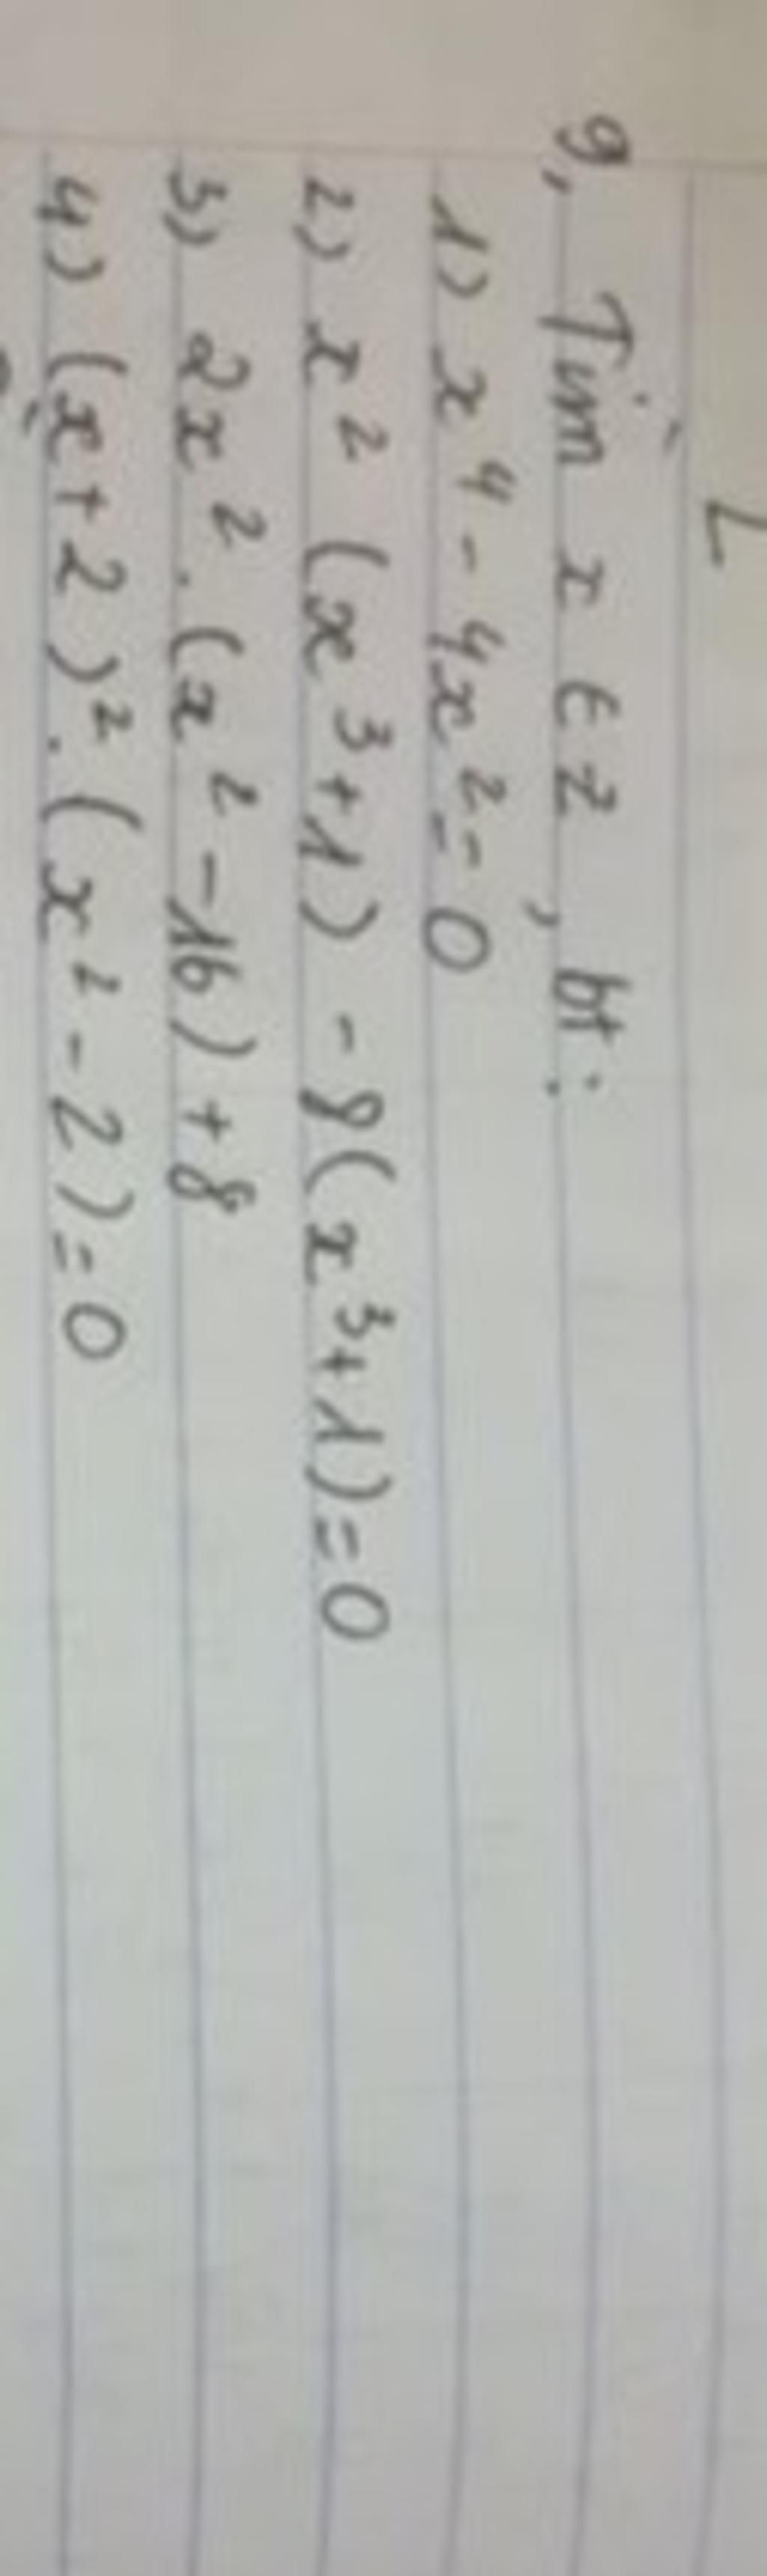 9, Tìm x ∈ Z, bt:
1) x⁴ - 4x² = 0
2) x² (x³ + 1) - 8(x³ + 1) = 0
3) 2x² . (x² - 16) + 8
4) (x + 2)² . (x² - 2) = 0